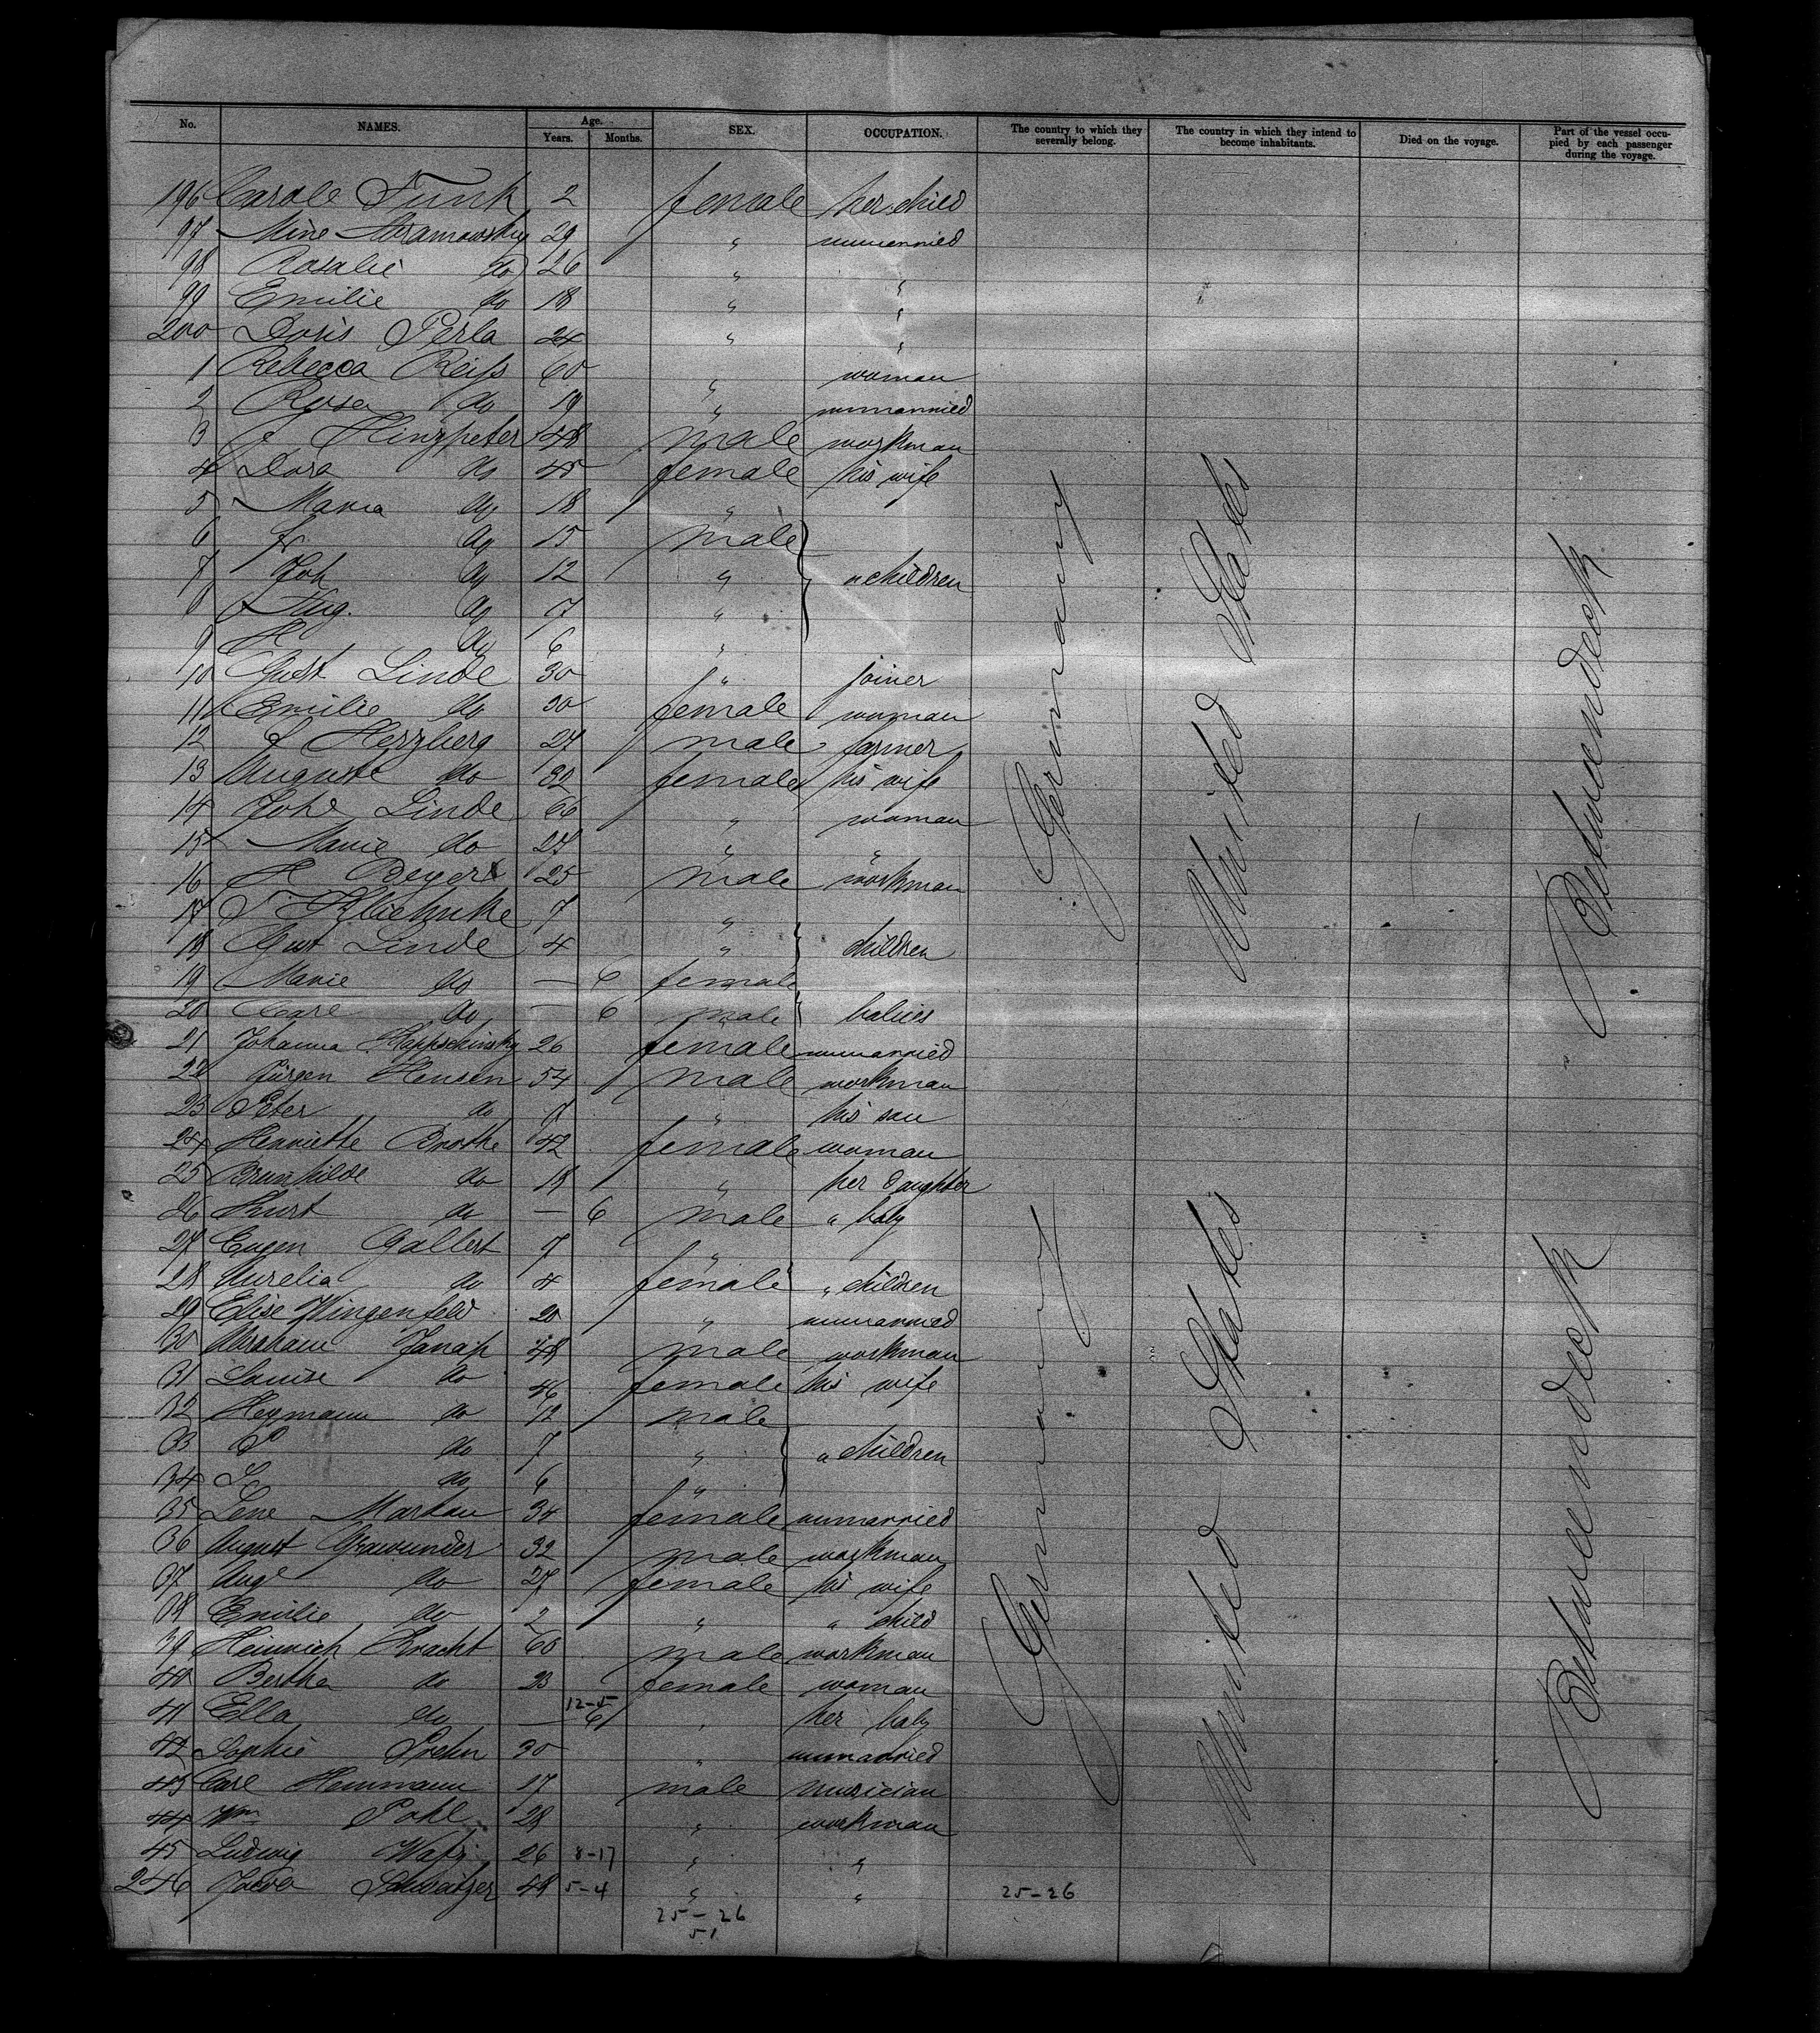 No. NAMES. Age. Years. Months. SEX. OCCUPATION. The country to which they severally belong. The country in which they intend to become inhabitants. Died on the voyage. Part of the vessel occupied by each passenger during the voyage.
196 Carole Funk 2 female her child
97 Mine Abramowsky 29 " unmarried
98 Rosalie do 26 " "
99 Emilie do 18 " "
200 Doris Perla 24 " "
1 Rebecca Reiß 60 " woman
2 Rosa do 19 " unmarried
3 Hinzpeter 48 male workman
4 Dora do 45 female his wife
5 Maria do 18 "
6 do 15 male
7 Joh do 12 " " children
8 Aug. do 7 "
9 H do 6 "
10 Gust Linde 30 " joiner
11 Emilie do 30 female woman
12 Herzberg 27 male farmer
13 Auguste do 32 female his wife
14 Johe Linde 66 " woman
15 Marie do 27 " "
16 H Beyer 25 male workman
17 7 "
18 Gust Linde 4 " children
19 Marie do — 6 female
20 Carl do — 6 male babies
21 Johanna 26 female unmarried
22 Jürgen Hensen 54 male workman
23 Peter do 7 " his son
24 Henriette 42 female woman
25 Brunhilde do 18 " her daughter
26 Kurt do — 6 male " baby
27 Eugen Gallert 7 "
28 Aurelia do 4 female " children
29 Elise Wingenfeld 20 " unmarried
30 Abraham 48 male workman
31 Louise do 46 female his wife
32 Heymann do 12 male
33 do 7 " " children
34 do 6 "
35 Lene 34 female unmarried
36 August Grawunder 32 male workman
37 Auge do 27 female his wife
38 Emilie do 2 " " child
39 Heinrich Kracht 60 male workman
40 Bertha do 23 female woman
12-5
41 Ella do — 6 " her baby
42 Sophie Prehn 30 " unmarried
43 Carl Hemmann 17 male musician
44 Wm Pohl 28 " workman
45 Ludwig 26 8-17 " "
246 Schweitzer 48 5-4 " " 25-26
25-26
51
Germany
United States
Betweendeck
Germany
United States
Betweendeck